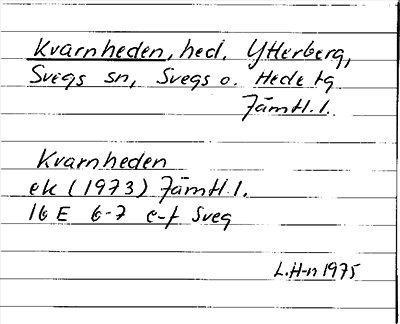 Kvarnheden, hed. Ytterberg,
Svegs sn, Svegs o. Hede tg
Jämtl. l.
Kvarnheden
ek (1973) Jämtl. l.
16 E 6-7 e-f Sveg
L.H-n 1975